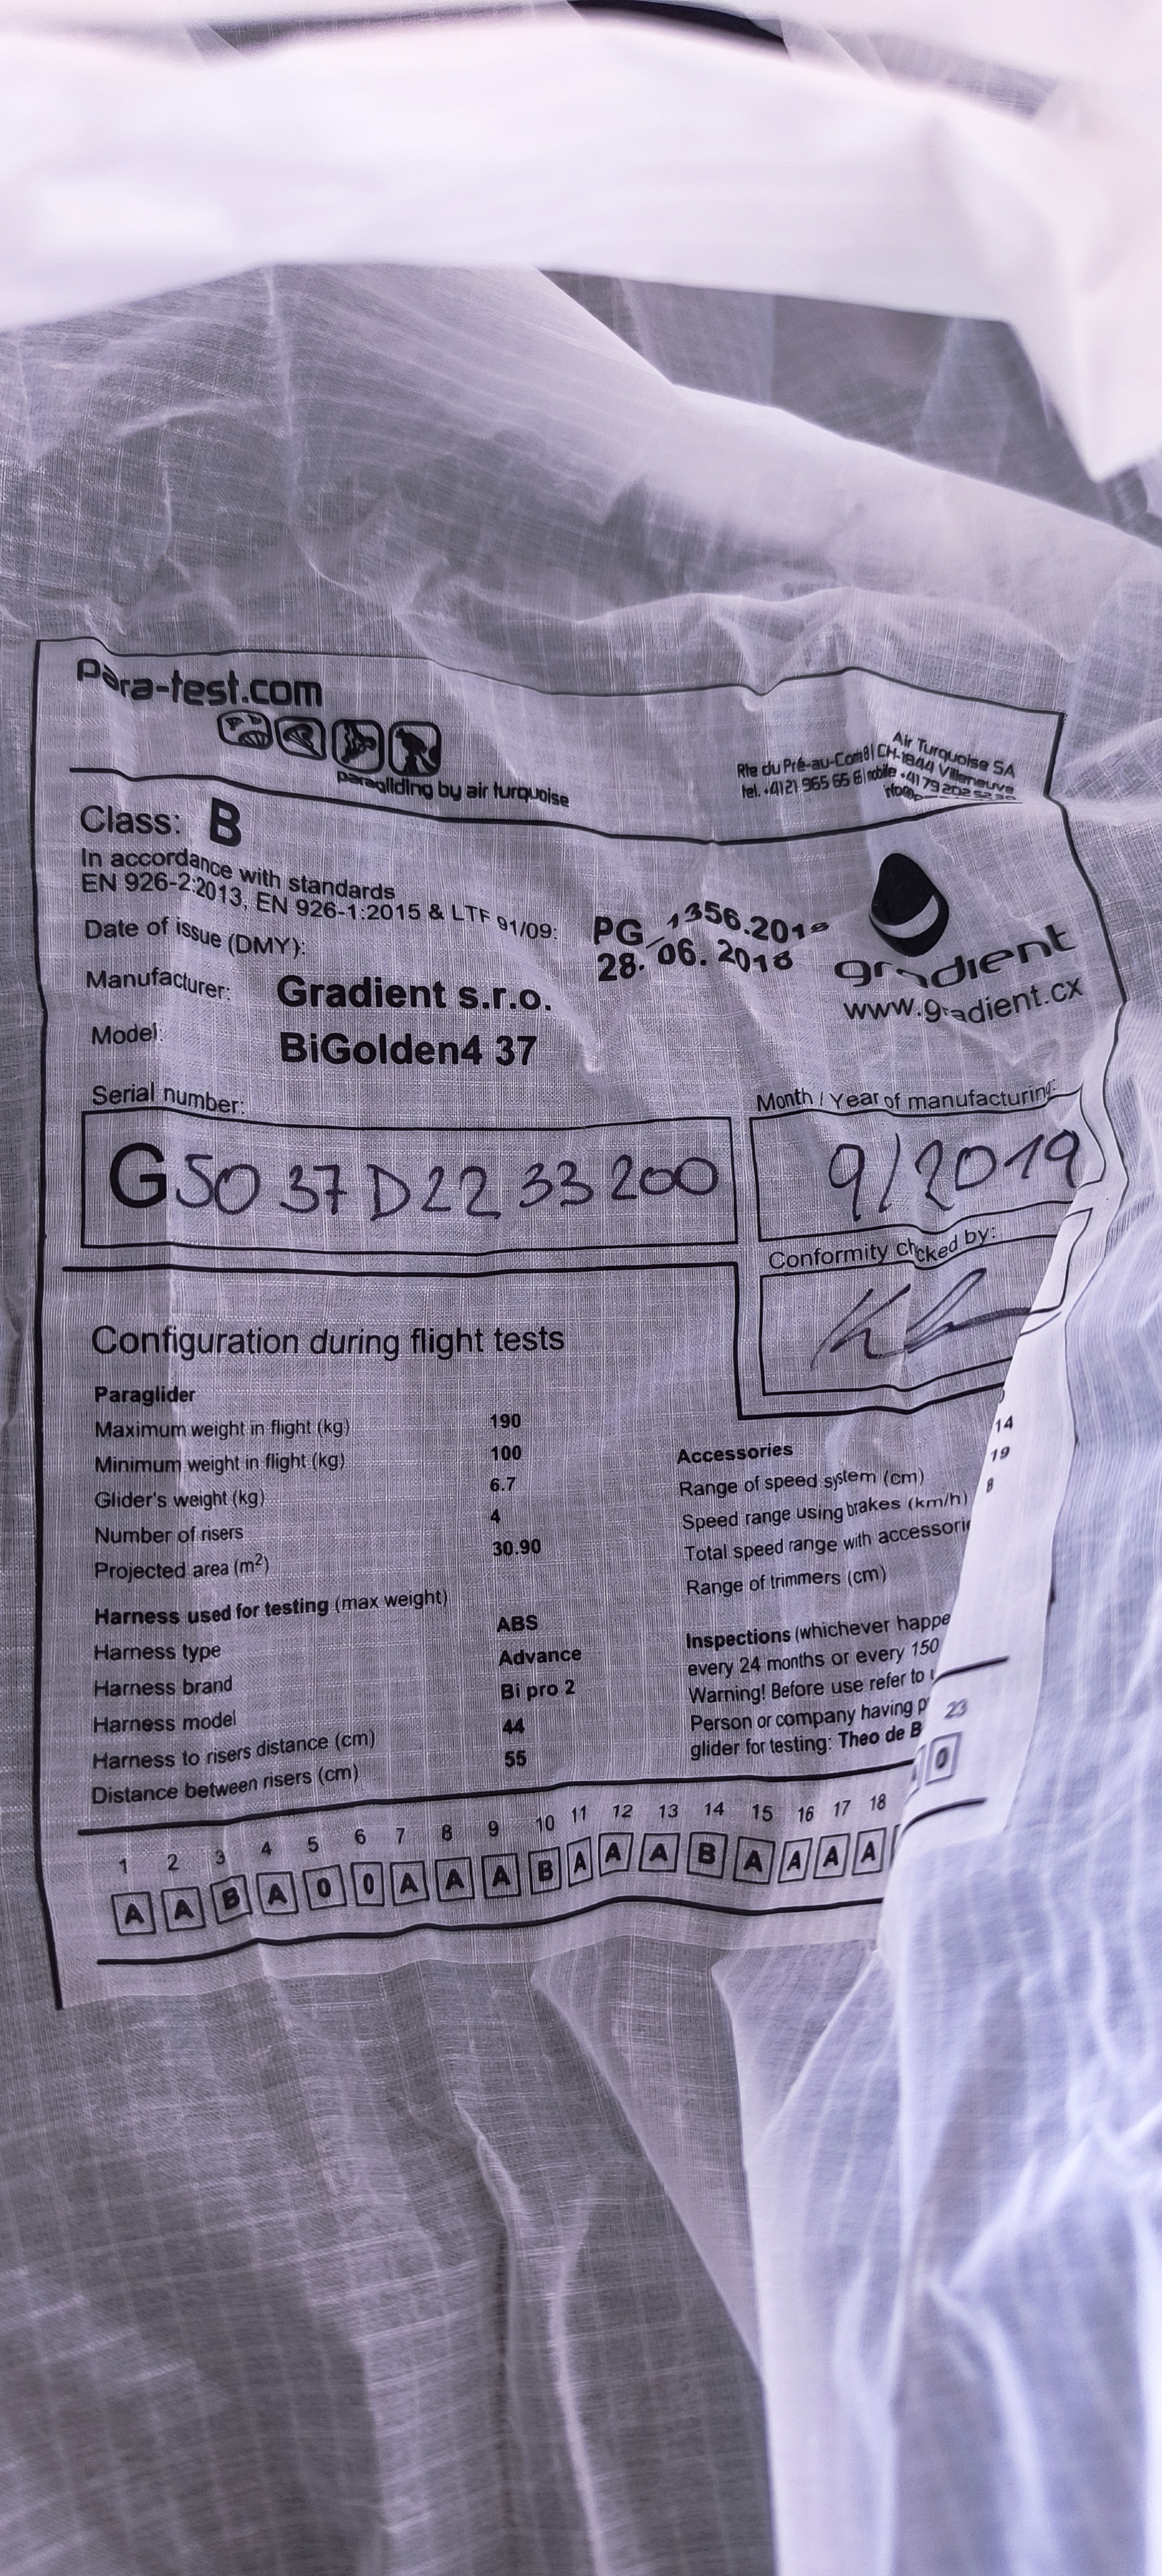 Para-test.com
paragliding by air turquoise
Air Turquoise SA
Rte du Pré-au-Comte 8 | CH-1844 Villeneuve
tel. +4121 965 65 6 | mobile +41 79 202 52 30
Class: B
In accordance with standards
EN 926-2:2013, EN 926-1:2015 & LTF 91/09:
PG_1356.2018
Date of issue (DMY):
28. 06. 2018
gradient
www.gradient.cx
Manufacturer: Gradient s.r.o.
Model: BiGolden4 37
Serial number:
Month / Year of manufacturing:
G50 37 D22 33 200
9/2019
Conformity chcked by:
Configuration during flight tests
Paraglider
Maximum weight in flight (kg) 190
Minimum weight in flight (kg) 100
Glider's weight (kg) 6.7
Number of risers 4
Projected area (m²) 30.90
Harness used for testing (max weight)
Harness type ABS
Harness brand Advance
Harness model Bi pro 2
Harness to risers distance (cm) 44
Distance between risers (cm) 55
Accessories
Range of speed system (cm)
Speed range using brakes (km/h) 14
Total speed range with accessorie 19
Range of trimmers (cm) 8
Inspections (whichever happe
every 24 months or every 150
Warning! Before use refer to
Person or company having p
glider for testing: Theo de B
1 2 3 4 5 6 7 8 9 10 11 12 13 14 15 16 17 18 23
A A B A 0 0 A A A B A A A B A A A A 0